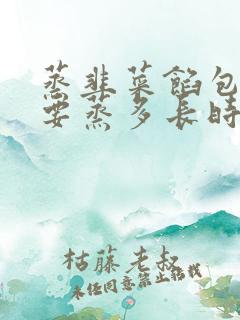 蒸韭菜餡包
要蒸多長時
枯藤老叔
未經同意禁止搭載